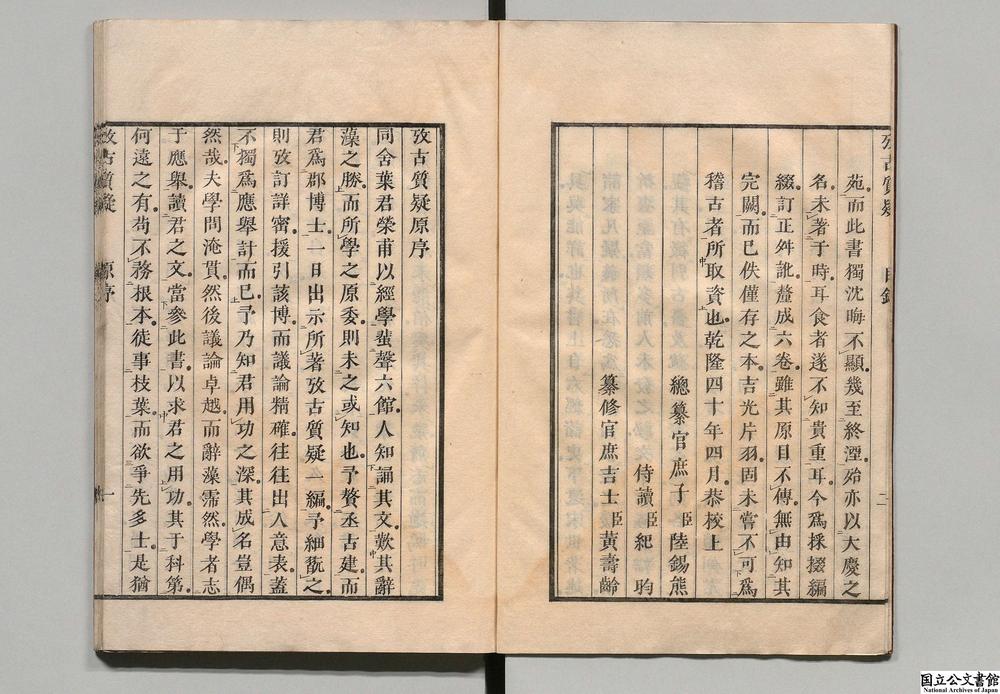 攷古質疑 目錄 二
苑而此書獨沈晦不顯幾至終湮殆亦以大慶之
名未著于時耳食者遂不知貴重耳今爲採掇編
綴訂正舛訛釐成六卷雖其原目不傳無由知其
完闕而已佚僅存之本吉光片羽固未嘗不可爲
稽古者所取資也乾隆四十年四月恭校上
總纂官庶子臣陸錫熊
侍讀臣紀昀
纂修官庶吉士臣黃壽齡
攷古質疑原序
同舍葉君榮甫以經學蜚聲六館人知誦其文歎其辭
藻之勝而所學之原委則未之或知也予贅丞古建而
君爲郡博士一日出示所著攷古質疑一編予細翫之
則攷訂詳密援引該博而議論精確往往出人意表蓋
不獨爲應舉計而已予乃知君用功之深其成名豈偶
然哉夫學問淹貫然後議論卓越而辭藻霈然學者志
于應舉讀君之文當參此書以求君之用功其于科第
何遠之有苟不務根本徒事枝葉而欲爭先多士是猶
攷古質疑 原序 一
国立公文書館
National Archives of Japan